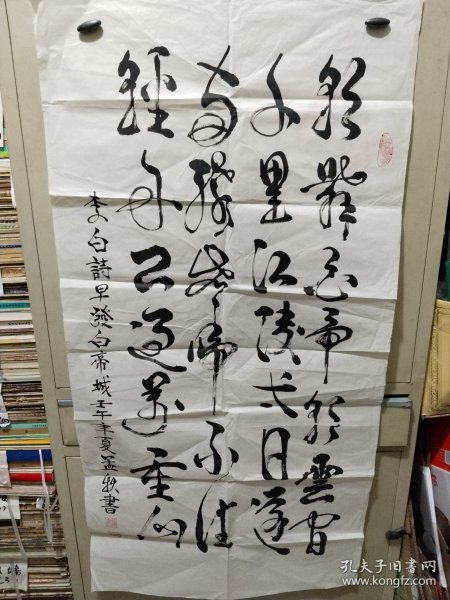 朝辭白帝彩雲間
千里江陵一日還
兩岸猿聲啼不住
輕舟已過萬重山
李白詩早發白帝城壬午年夏書
孔夫子旧书网
www.kongfz.com